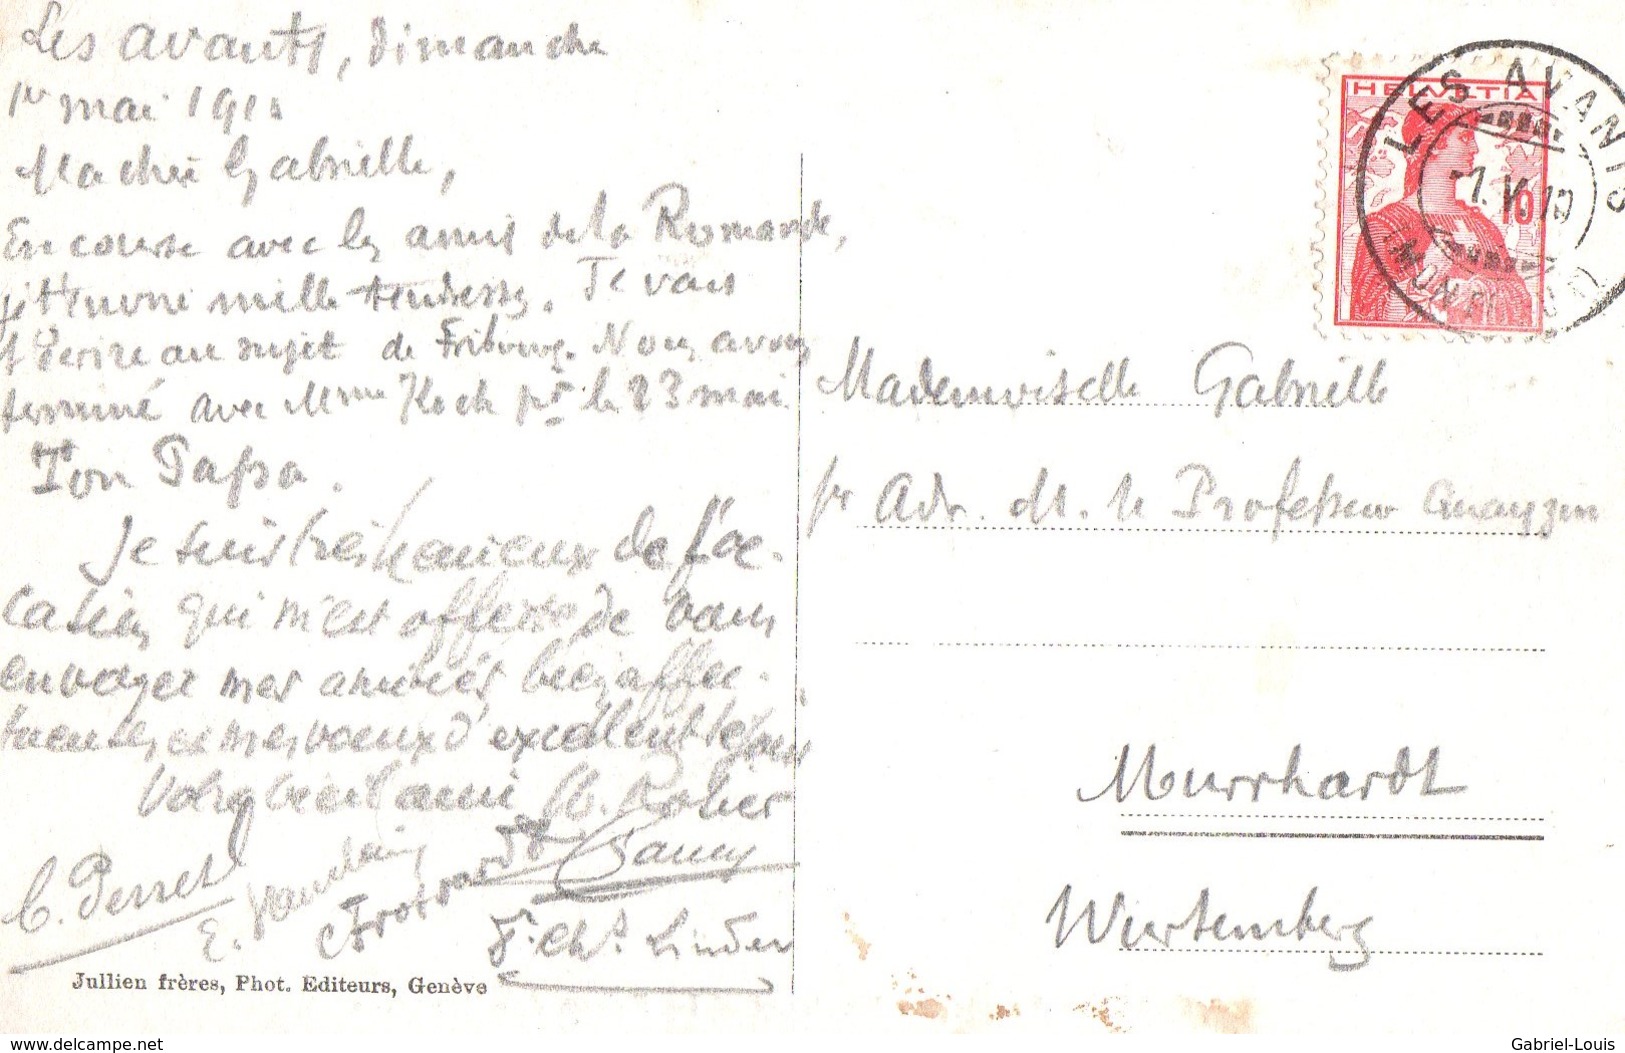 Les avants, dimanche
1er mai 1910
Ma chère Gabrielle,
En course avec les amis de la Romande,
je t'envoie mille tendresses. Je vais
t'écrire au sujet de Fribourg. Nous avons
terminé avec Mme Koch pr le 23 mai.
Ton Papa.
Je suis très heureux de l'oc-
casion qui m'est offerte de vous
envoyer mes amitiés bien affec-
tueuses et mes voeux d'excellent séjour
Votre vieil ami
C. Perret
F. Chs. Linder
Jullien frères, Phot. Editeurs, Genève
HELVETIA
10
LES AVANTS
1.V.10
(MONTREUX)
Mademoiselle Gabrielle
pr Adr. M. le Professeur
Murrhardt
Würtemberg
www.delcampe.net
Gabriel-Louis